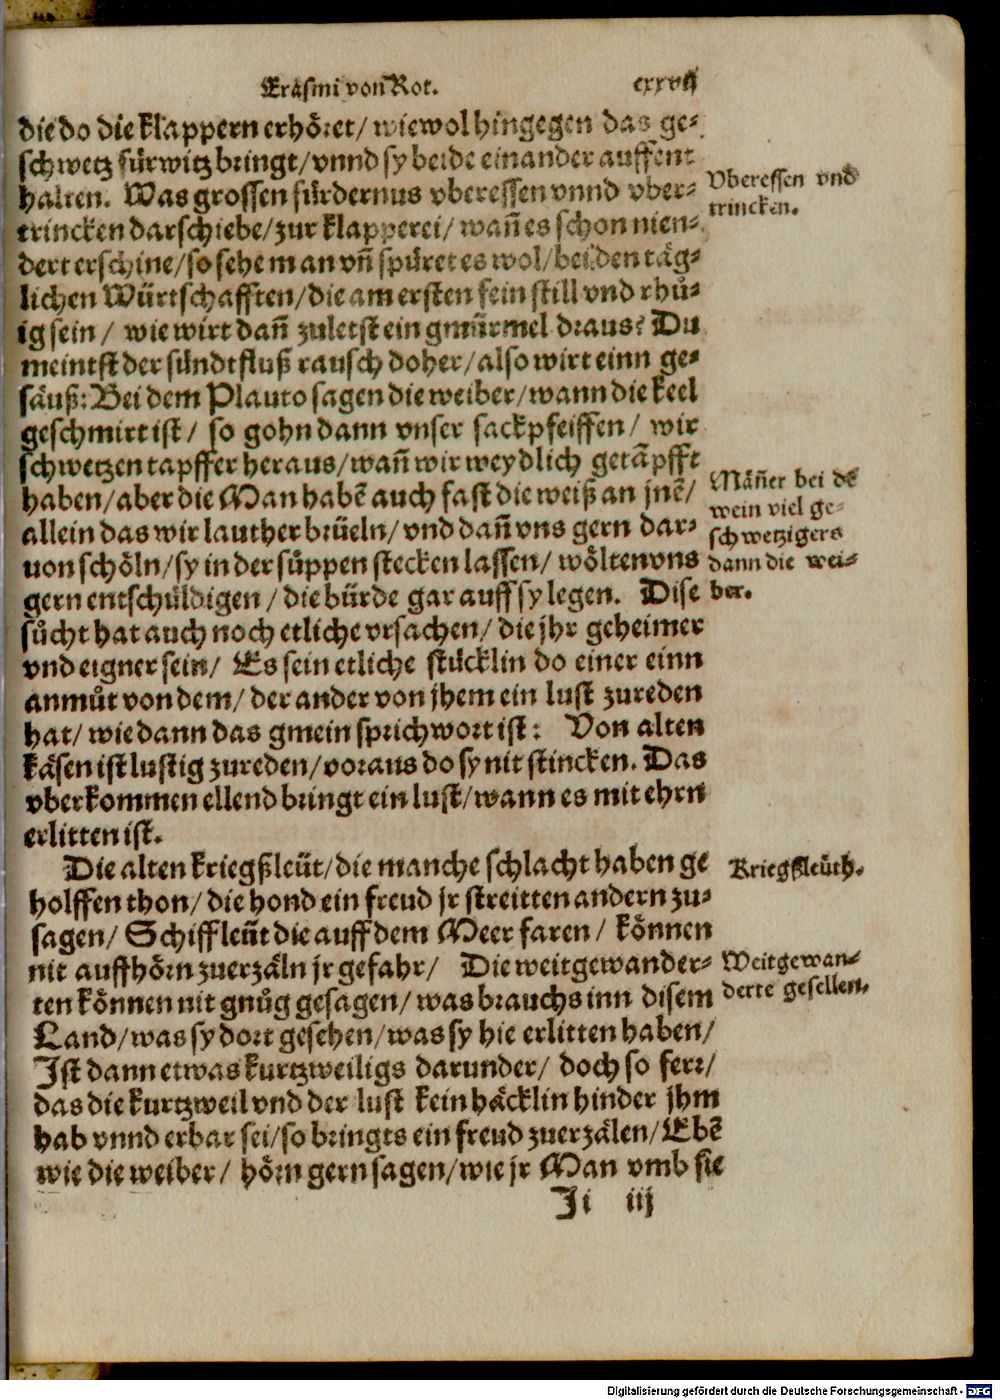 Eräsmi von Rot.
cxxvij
die do die klappern erhöret/ wiewol hingegen das ge-
schwetz fürwitz bringt/ vnnd sy beide einander auffent
halten. Was grossen fürdernus vberessen vnnd vber-
trincken darschiebe/ zur klapperei/ wañ es schon nien-
dert erschine/ so sehe man vñ spüret es wol/ bei den täg-
lichen Würtschafften/ die am ersten sein still vnd rhů-
ig sein/ wie wirt dañ zuletst ein gmürmel draus? Du
meintst der sündtfluß rausch doher/ also wirt einn ge-
säuß: Bei dem Plauto sagen die weiber/ wann die keel
geschmirt ist/ so gohn dann vnser sackpfeiffen/ wir
schwetzen tapffer heraus/ wañ wir weydlich getãpfft
haben/ aber die Man habẽ auch fast die weiß an jnẽ/
allein das wir lauther brüeln/ vnd dañ vns gern dar-
uon schöln/ sy in der süppen stecken lassen/ wölten vns
gern entschuldigen/ die bürde gar auff sy legen. Dise
sůcht hat auch noch etliche vrsachen/ die jhr geheimer
vnd eigner sein/ Es sein etliche stücklin do einer einn
anmůt von dem/ der ander von jhem ein lust zureden
hat/ wie dann das gmein sprichwort ist: Von alten
käsen ist lustig zureden/ voraus do sy nit stincken. Das
vberkommen ellend bringt ein lust/ wann es mit ehrn
erlitten ist.
Die alten kriegßleüt/ die manche schlacht haben ge
holffen thon/ die hond ein freud jr streitten andern zu-
sagen/ Schiffleüt die auff dem Meer faren/ können
nit auffhörn zuerzäln jr gefahr/ Die weitgewander-
ten können nit gnůg gesagen/ was brauchs inn disem
Land/ was sy dort gesehen/ was sy hie erlitten haben/
Jst dann etwas kurtzweiligs darunder/ doch so ferr/
das die kurtzweil vnd der lust kein häcklin hinder jhm
hab vnnd erbar sei/ so bringts ein freud zuerzälen/ Ebẽ
wie die weiber/ hörn gern sagen/ wie jr Man vmb sie
Ji iij
Vberessen vnd
trincken.
Mäñer bei dẽ
wein viel ge-
schwetzigers
dann die wei-
ber.
Kriegßleüth.
Weitgewan-
derte gesellen.
Digitalisierung gefördert durch die Deutsche Forschungsgemeinschaft - DFG